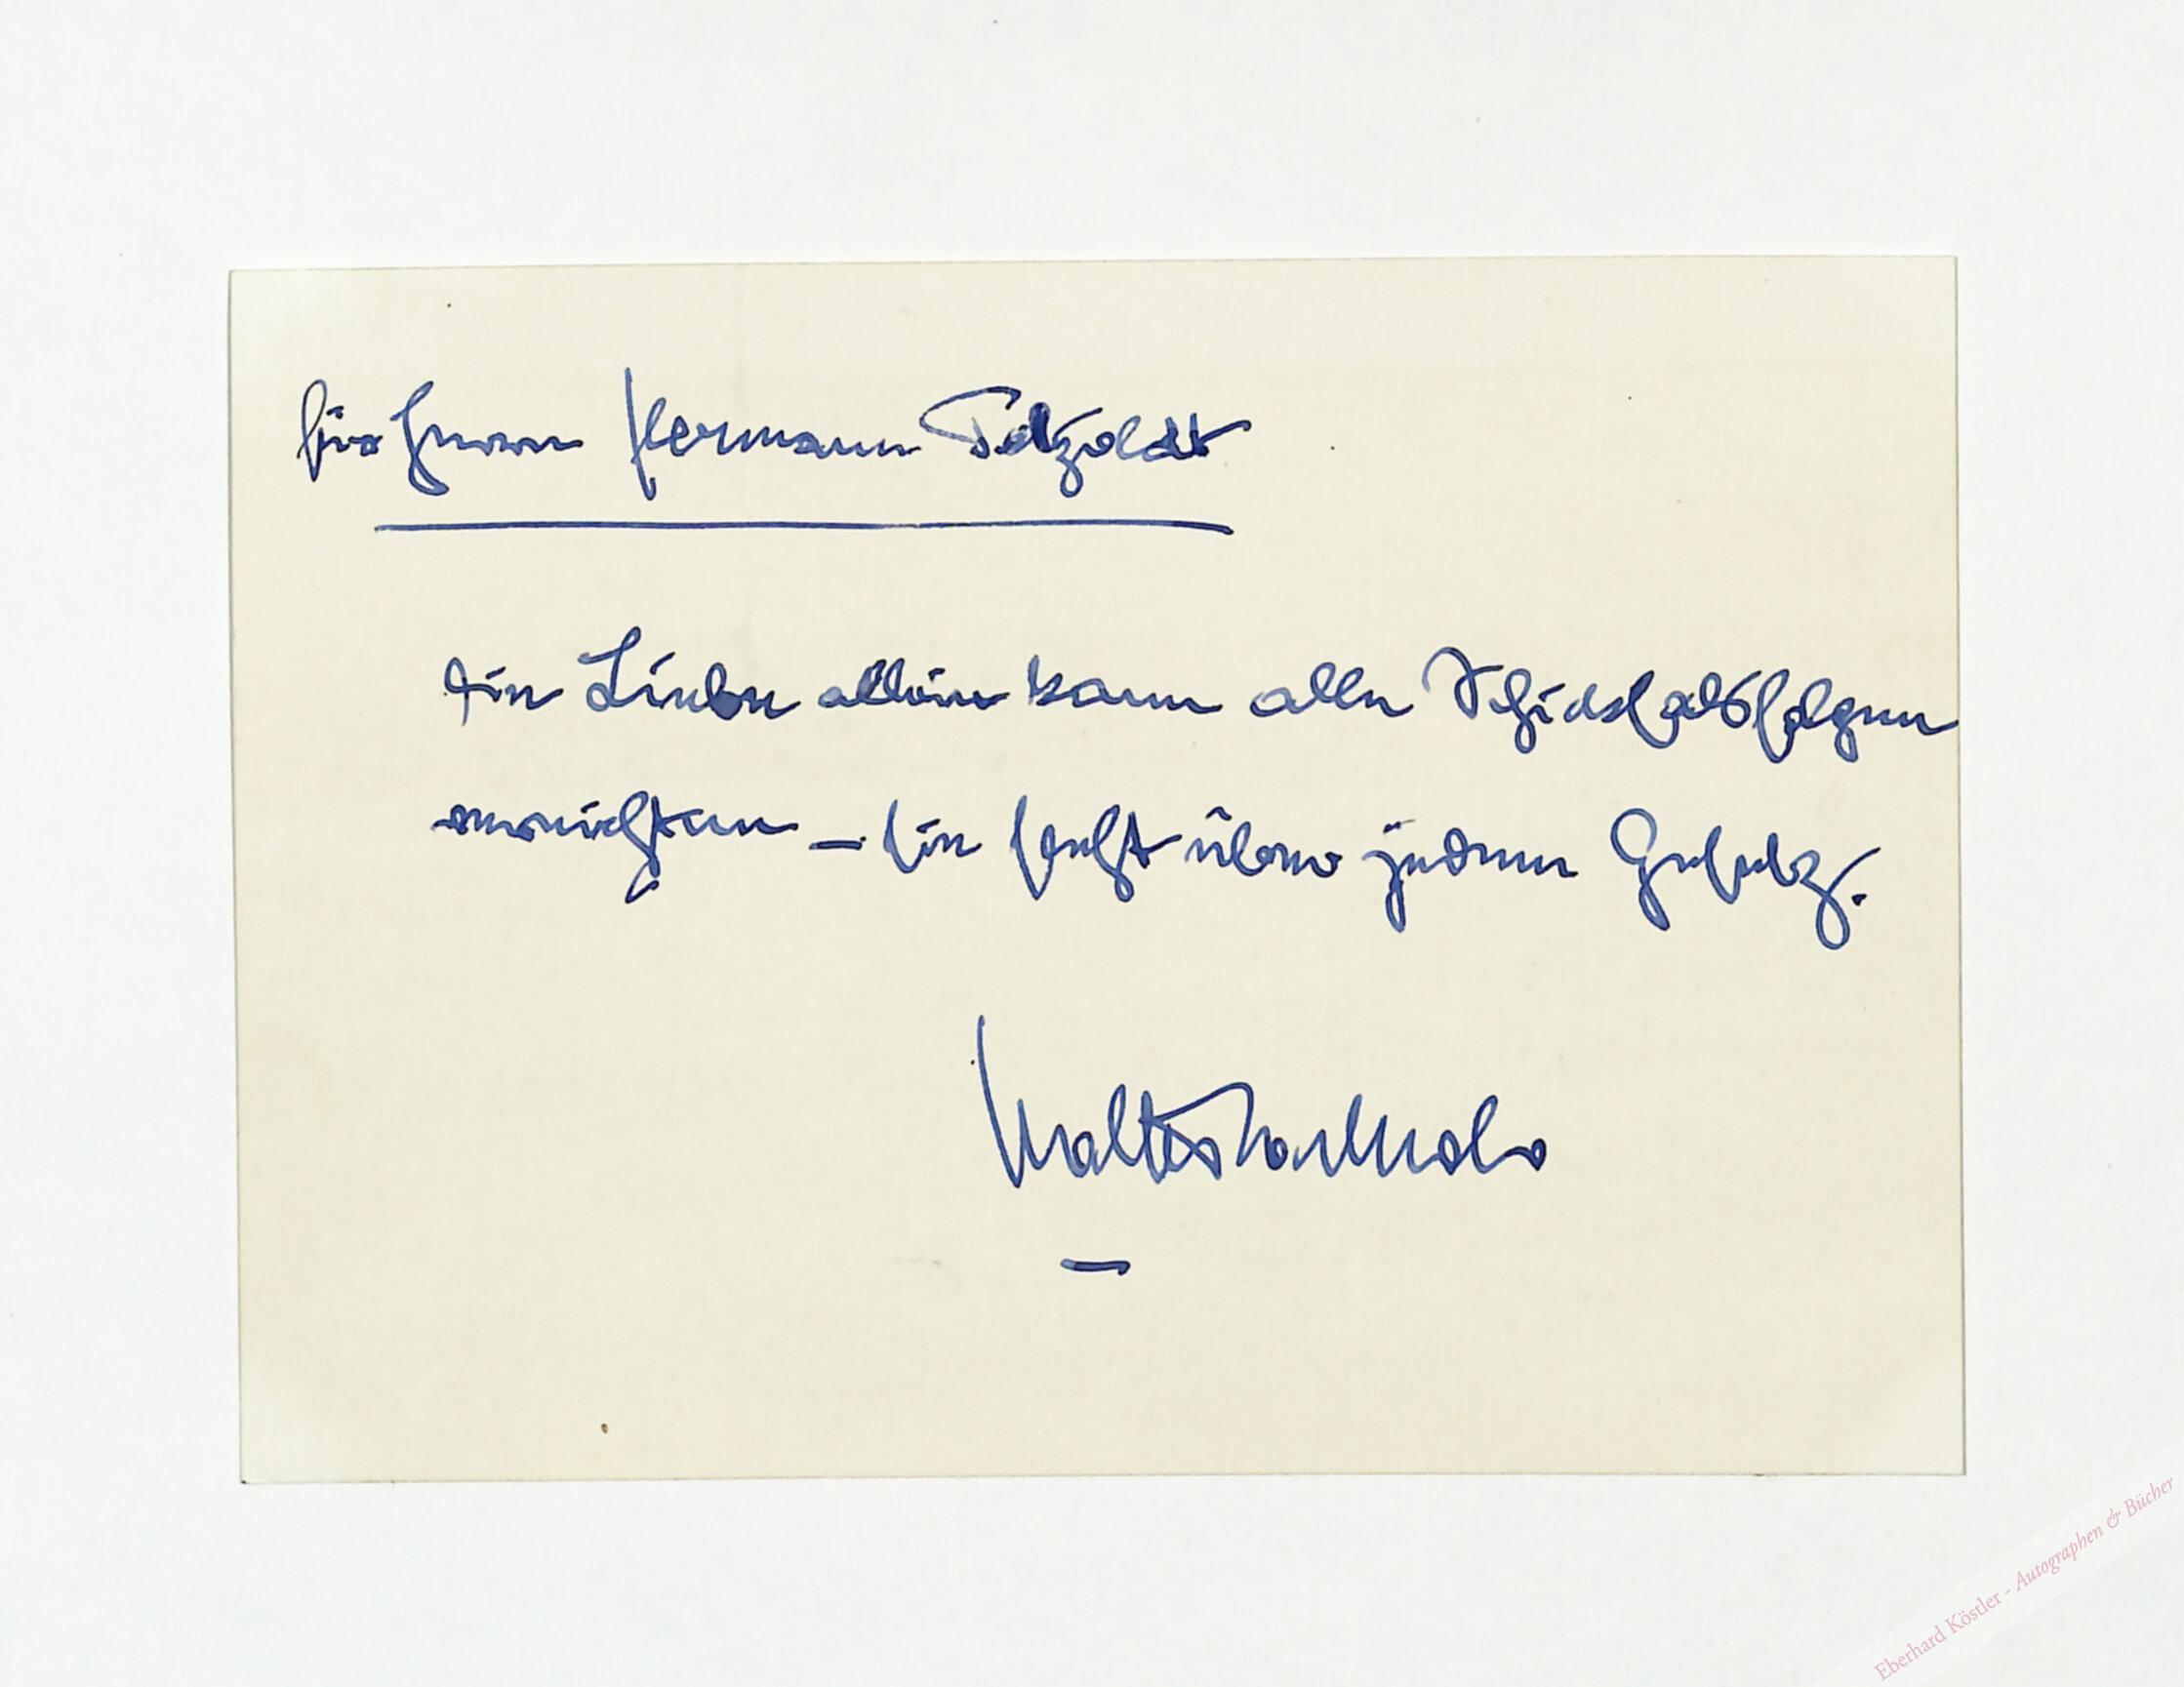 Für Herrn Hermann Petzoldt
Die Liebe allein kann alle Schicksalsfolgen
vernichten – sie steht über jedem Gesetz.
Walter von Molo
Eberhard Köstler - Autographen & Bücher